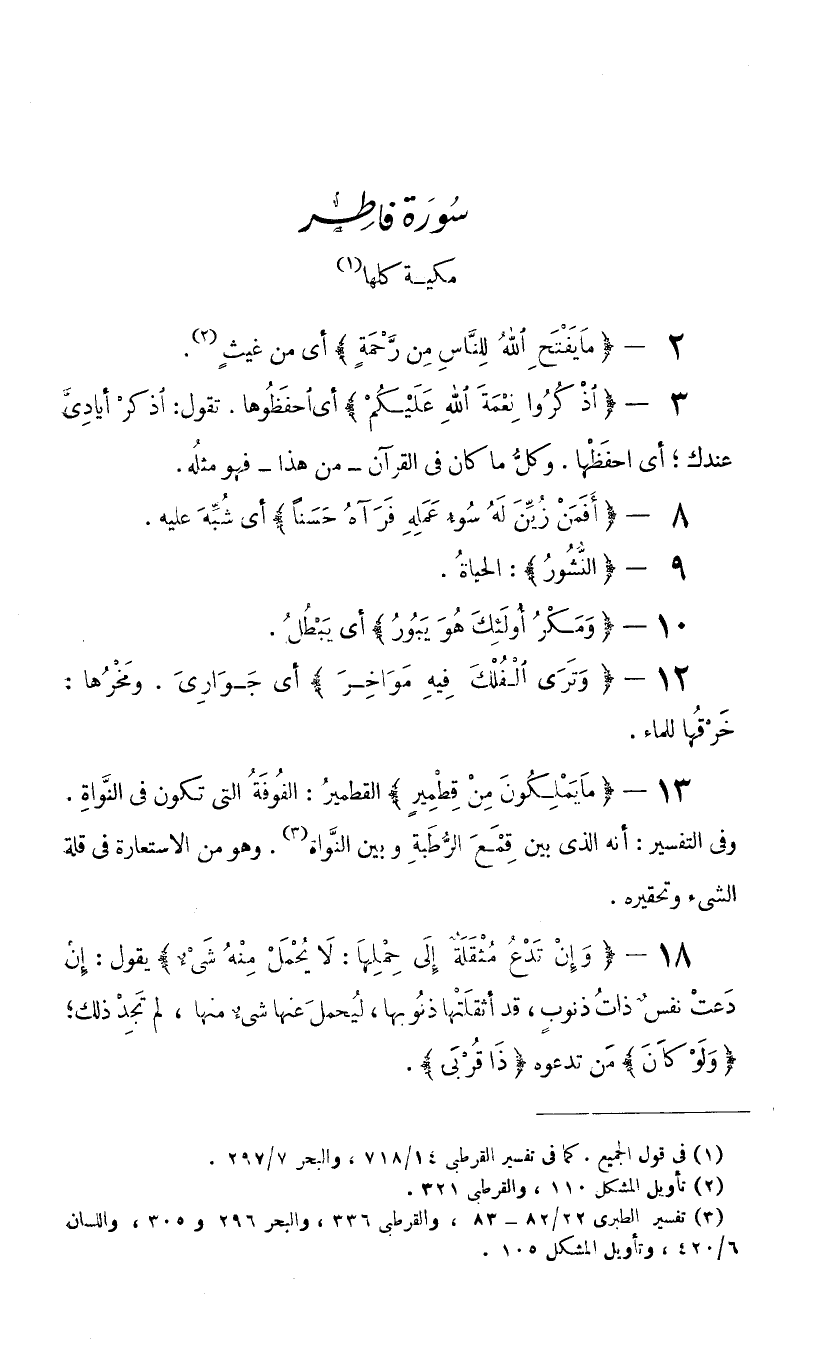 سُورَة فَاطِر
مكيـة كلها(١)
٢ — ﴿ مَا يَفْتَحِ ٱللهُ لِلنَّاسِ مِن رَّحْمَةٍ ﴾ أى من غيثٍ(٢).
٣ — ﴿ ٱذْكُرُوا نِعْمَةَ ٱللهِ عَلَيْـكُمْ ﴾ أى ٱحفَظُوها . تقول: ٱذكرْ أيادِىَّ
عندك ؛ أى احفَظْها . وكلُّ ما كان فى القرآن – من هذا – فهو مثلُه.
٨ — ﴿ أَفَمَنْ زُيِّنَ لَهُ سُوءُ عَمَلِهِ فَرَآهُ حَسَناً ﴾ أى شُبِّهَ عليه .
٩ — ﴿ النُّشُورُ ﴾ : الحياةُ .
١٠ — ﴿ وَمَـكْرُ أُولَئِكَ هُوَ يَبُورُ ﴾ أى يَبْطُلُ .
١٢ — ﴿ وَتَرَى ٱلْـفُلْكَ فِيهِ مَوَاخِـرَ ﴾ أى جَـوَارِىَ . ومَخْرُها :
خَرْقُها للماء .
١٣ — ﴿ مَا يَمْلِـكُونَ مِنْ قِطْمِيرٍ ﴾ القطميرُ : الفُوفَةُ التى تكون فى النَّواةِ .
وفى التفسير : أنه الذى بين قِمْـعَ الرُّطَبةِ و بين النَّواة(٣) . وهو من الاستعارة فى قلة
الشىء وتحقيره .
١٨ — ﴿ وَإِنْ تَدْعُ مُثْقَلَةٌ إِلَى حِمْلِهَا : لَا يُحْمَلْ مِنْهُ شَىْءٌ ﴾ يقول : إِنْ
دَعتْ نفسٌ ذاتُ ذنوبٍ ، قد أثقلَتْها ذنُوبها ، لِيُحمل عنها شىءٌ منها ، لم تَجِدْ ذلك؛
﴿ وَلَوْ كَانَ ﴾ مَن تدعوه ﴿ ذَا قُرْبَى ﴾ .
(١) فى قول الجميع . كما فى تفسير القرطبى ٧١٨/١٤ ، والبحر ٢٩٧/٧ .
(٢) تأويل المشكل ١١٠ ، والقرطبى ٣٢١ .
(٣) تفسير الطبرى ٨٢/٢٢ – ٨٣ ، والقرطبى ٣٣٦ ، والبحر ٢٩٦ و ٣٠٥ ، واللسان
٤٢٠/٦ ، وتأويل المشكل ١٠٥ .